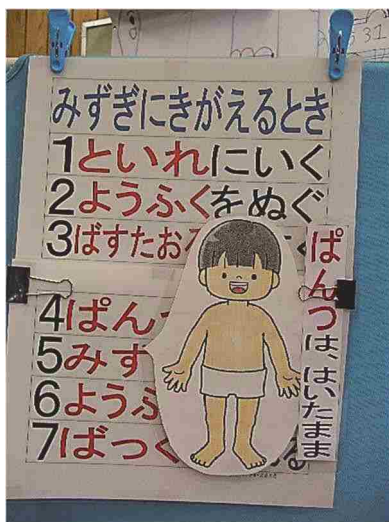 みずぎにきがえるとき
1といれにいく
2ようふくをぬぐ
3ばすたお
4ぱん
5みず
6ようふ
7ばっく
ぱんつは、はいたまま